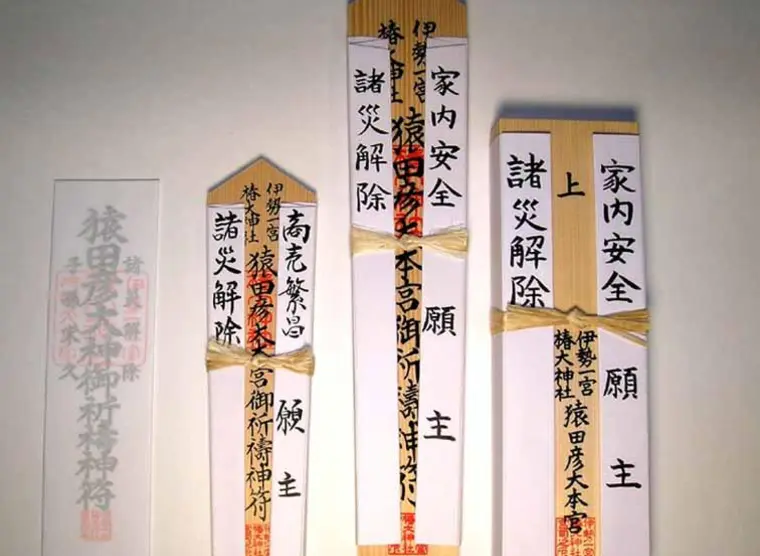 猿田彦大神御祈祷神符
諸災解除
子孫永久
伊勢一宮
椿大神社
猿田彦大本宮御祈禱神符
商売繁昌
諸災解除
願主
伊勢一宮
椿大神社
猿田彦大本宮御祈禱神符
家内安全
諸災解除
願主
椿大神社
上
伊勢一宮
椿大神社
猿田彦大本宮
家内安全
諸災解除
願主
伊勢一宮
椿大神社